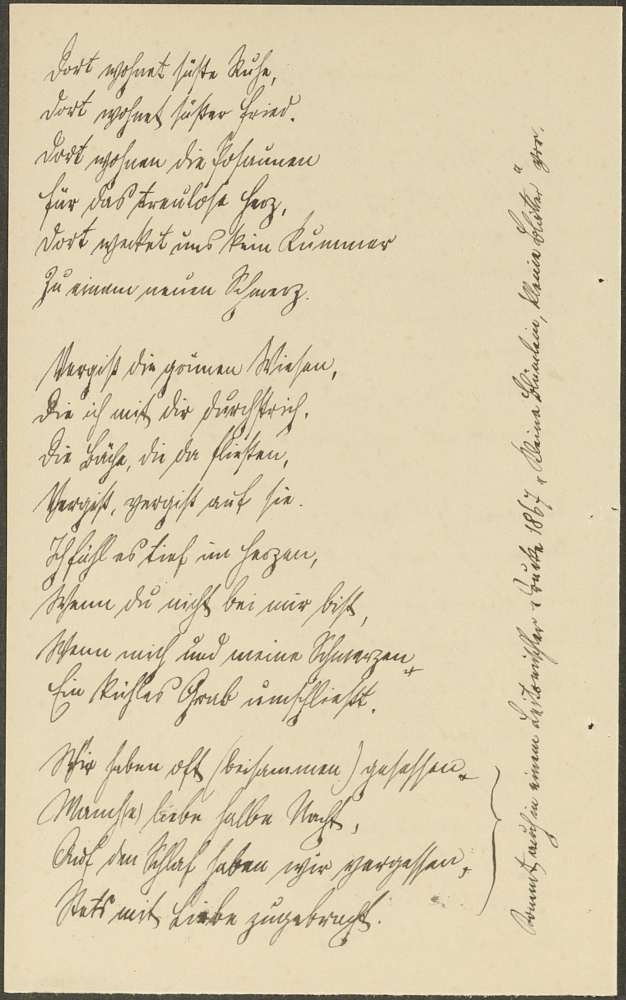 Dort wohnet süße Ruhe,
Dort wohnet süßer Fried.
Dort wohnen die Posaunen
für das treulose Herz,
Dort wecket uns kein Kummer
Zu einem neuen Schmerz.
Vergiß die grünen Wiesen,
Die ich mit dir durchstrich.
Die Bäche, die da fließen,
Vergiß, vergiß auf sie.
Ich fühl es tief im Herzen,
Wenn du nicht bei mir bist,
Wenn mich und meine Schmerzen
Ein kühles Grab umschließt.
Wir haben oft (beisammen) gesessen
Manch(e) liebe halbe Nacht,
Auf den Schlaf haben wir vergessen,
Stets mit Liebe zugebracht.
Kommt auch in einem Drucke 1867 „Kleine Blümlein, kleine Blätter" vor.